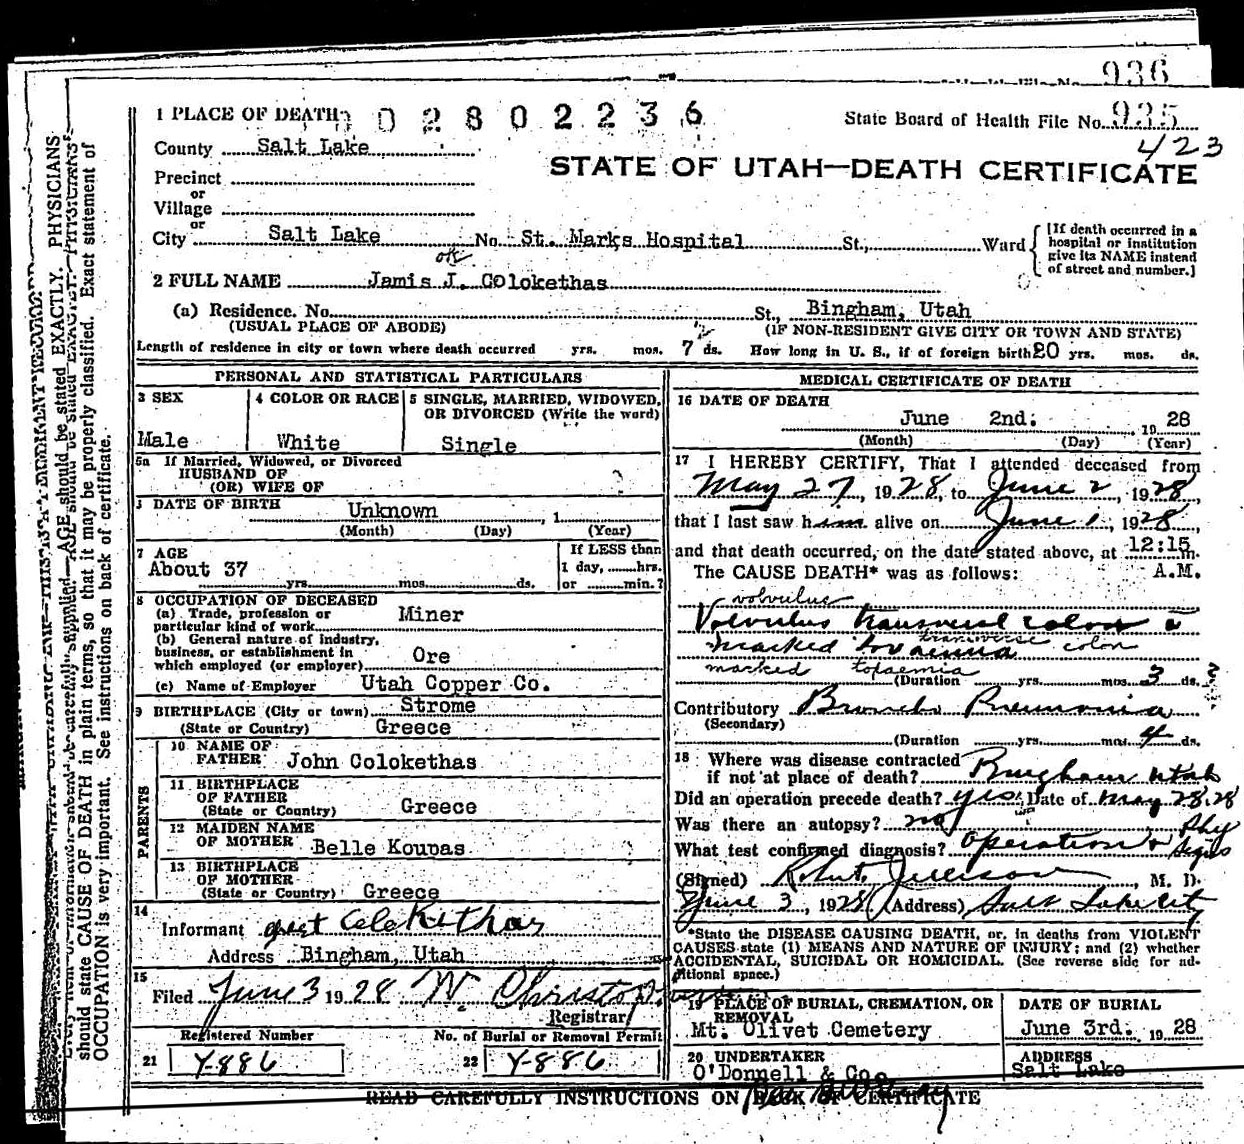 936
1 PLACE OF DEATH
02802236
State Board of Health File No. 935
423
County Salt Lake
STATE OF UTAH—DEATH CERTIFICATE
Precinct
or
Village
or
City Salt Lake No. St. Marks Hospital St., Ward
[If death occurred in a
hospital or institution
give its NAME instead
of street and number.]
ok
2 FULL NAME Jamis J. COlokethas
(a) Residence. No. St., Bingham, Utah
(USUAL PLACE OF ABODE) (IF NON-RESIDENT GIVE CITY OR TOWN AND STATE)
Length of residence in city or town where death occurred yrs. mos. 7 ds. How long in U. S., if of foreign birth 20 yrs. mos. ds.
PERSONAL AND STATISTICAL PARTICULARS
3 SEX
Male
4 COLOR OR RACE
White
5 SINGLE, MARRIED, WIDOWED,
OR DIVORCED (Write the word)
Single
5a If Married, Widowed, or Divorced
HUSBAND OF
(OR) WIFE OF
DATE OF BIRTH Unknown , 1
(Month) (Day) (Year)
7 AGE
About 37
yrs. mos. ds.
If LESS than
1 day, hrs.
or min.?
8 OCCUPATION OF DECEASED
(a) Trade, profession or
particular kind of work Miner
(b) General nature of industry,
business, or establishment in
which employed (or employer) Ore
(c) Name of Employer Utah Copper Co.
9 BIRTHPLACE (City or town) Strome
(State or Country) Greece
PARENTS
10 NAME OF
FATHER John Colokethas
11 BIRTHPLACE
OF FATHER
(State or Country) Greece
12 MAIDEN NAME
OF MOTHER Belle Koupas
13 BIRTHPLACE
OF MOTHER
(State or Country) Greece
14
Informant Colokethas
Address Bingham, Utah
15
Filed June 3 1928 W
Registrar
Registered Number
21 Y-886
No. of Burial or Removal Permit
22 Y-886
MEDICAL CERTIFICATE OF DEATH
16 DATE OF DEATH
June 2nd. , 19 28
(Month) (Day) (Year)
17 I HEREBY CERTIFY, That I attended deceased from
May 27, 1928, to June 2, 1928,
that I last saw him alive on June 1, 1928,
and that death occurred, on the date stated above, at 12:15 m.
The CAUSE DEATH* was as follows: A.M.
volvulus
Volvulus transversal colon
transverse colon
marked toxaemia
marked toxaemia
(Duration yrs. mos. 3 ds.
Contributory Broncho Pneumonia
(Secondary)
(Duration yrs. mos. 4 ds.
18 Where was disease contracted
if not at place of death? Bingham Utah
Did an operation precede death? yes. Date of May 28, 28
Was there an autopsy? no
What test confirmed diagnosis? Operation & Phy signs
(Signed) Robert , M. D.
June 3, 1928 (Address) Salt Lake City
*State the DISEASE CAUSING DEATH, or, in deaths from VIOLENT
CAUSES state (1) MEANS AND NATURE OF INJURY; and (2) whether
ACCIDENTAL, SUICIDAL OR HOMICIDAL. (See reverse side for ad-
ditional space.)
19 PLACE OF BURIAL, CREMATION, OR
REMOVAL
Mt. Olivet Cemetery
DATE OF BURIAL
June 3rd. 19 28
20 UNDERTAKER
O'Donnell & Co.
ADDRESS
Salt Lake
READ CAREFULLY INSTRUCTIONS ON BACK OF CERTIFICATE
should state CAUSE OF DEATH in plain terms, so that it may be properly classified. Exact statement of
OCCUPATION is very important. See instructions on back of certificate.